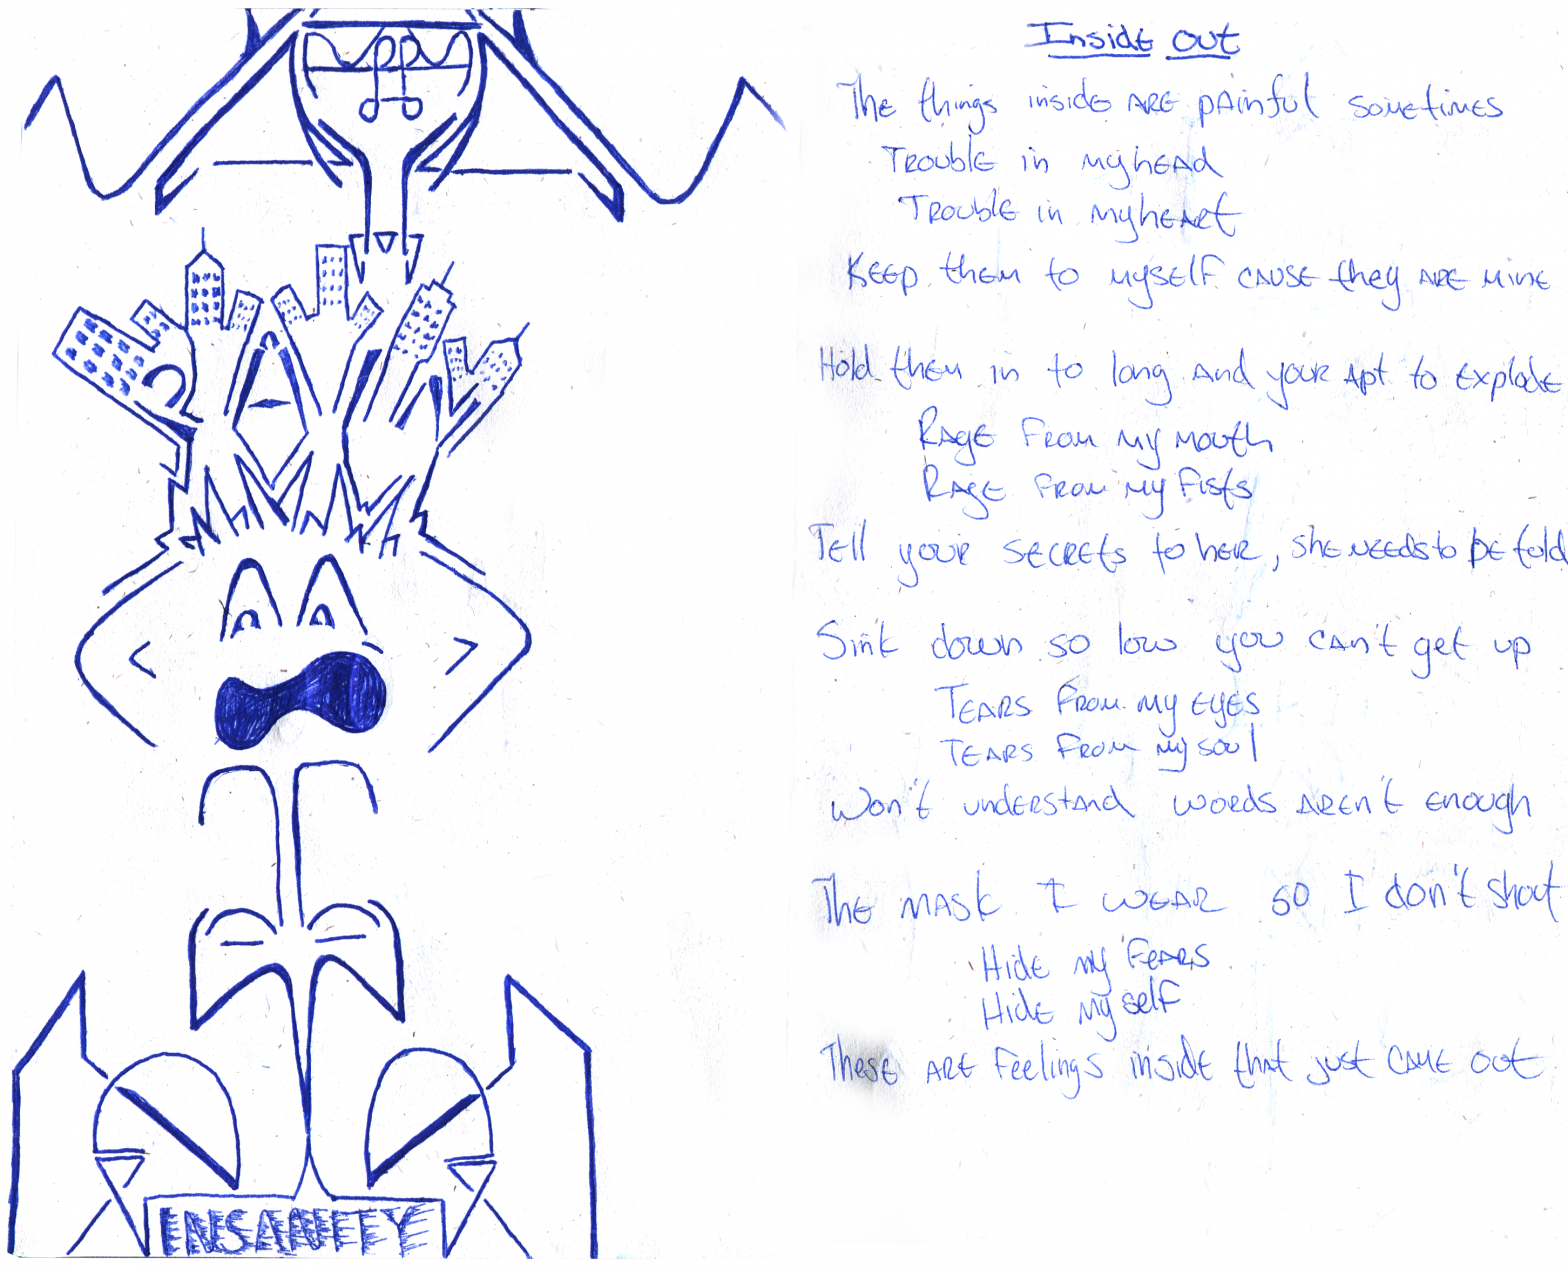 INSANITY
Inside Out
The things inside ARE pAinful sometimes
TROUBLE in my head
TROUBLE in my heart
KEEP them to myself cause they ARE mine
Hold them in to long and your Apt to Explode
RAGE FROM my mouth
RAGE FROM my Fists
Tell your secrets to her, she needs to be told
Sink down so low you can't get up
TEARS FROM my EYES
TEARS FROM my soul
Won't understand words aren't enough
The mask I wear so I don't shout
Hide my Fears
Hide my self
These ARE Feelings inside that just came out